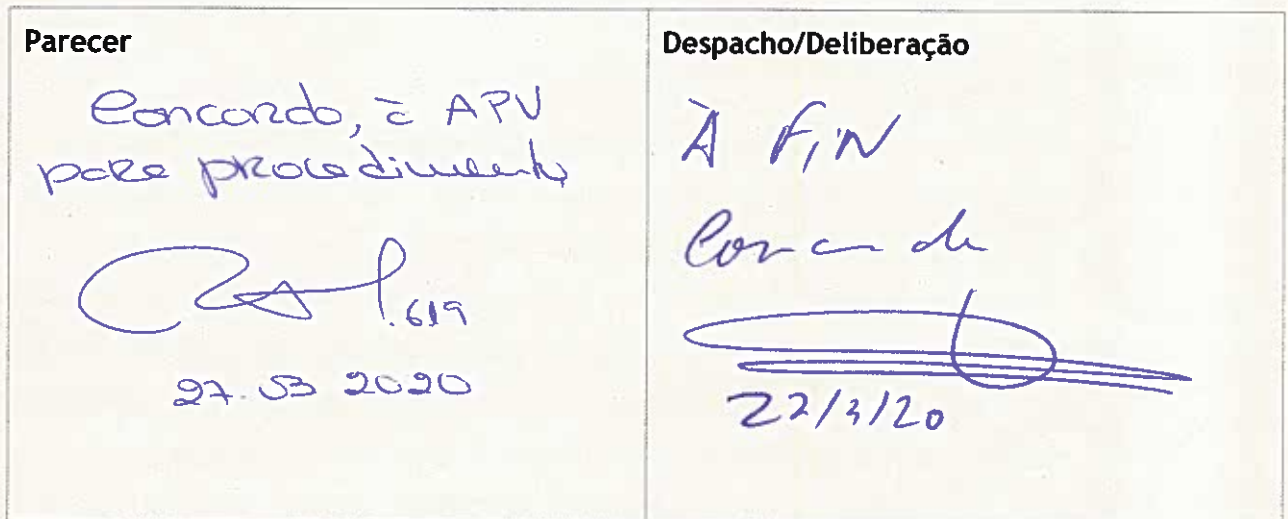 Parecer
Concordo, à APV
para procedimento
.619
27.03 2020
Despacho/Deliberação
À FIN
Concordo
22/3/20